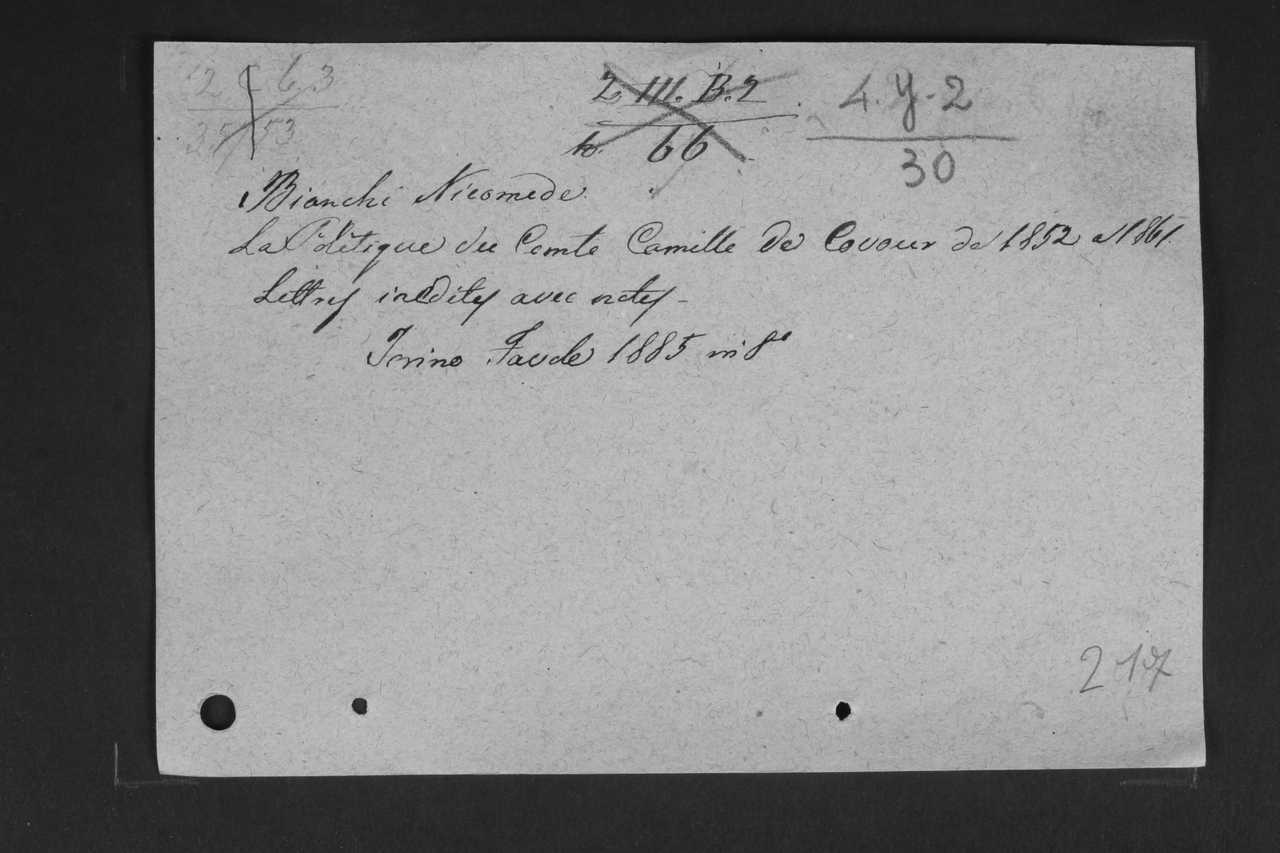 2 C 63
35 53
2 III. B. 2
to. 66
4. Y. 2
30
Bianchi Nicomede
La Politique du Comte Camille de Cavour de 1852 a 1861
Lettres inedites avec notes -
Torino Favale 1885 in 8°
217